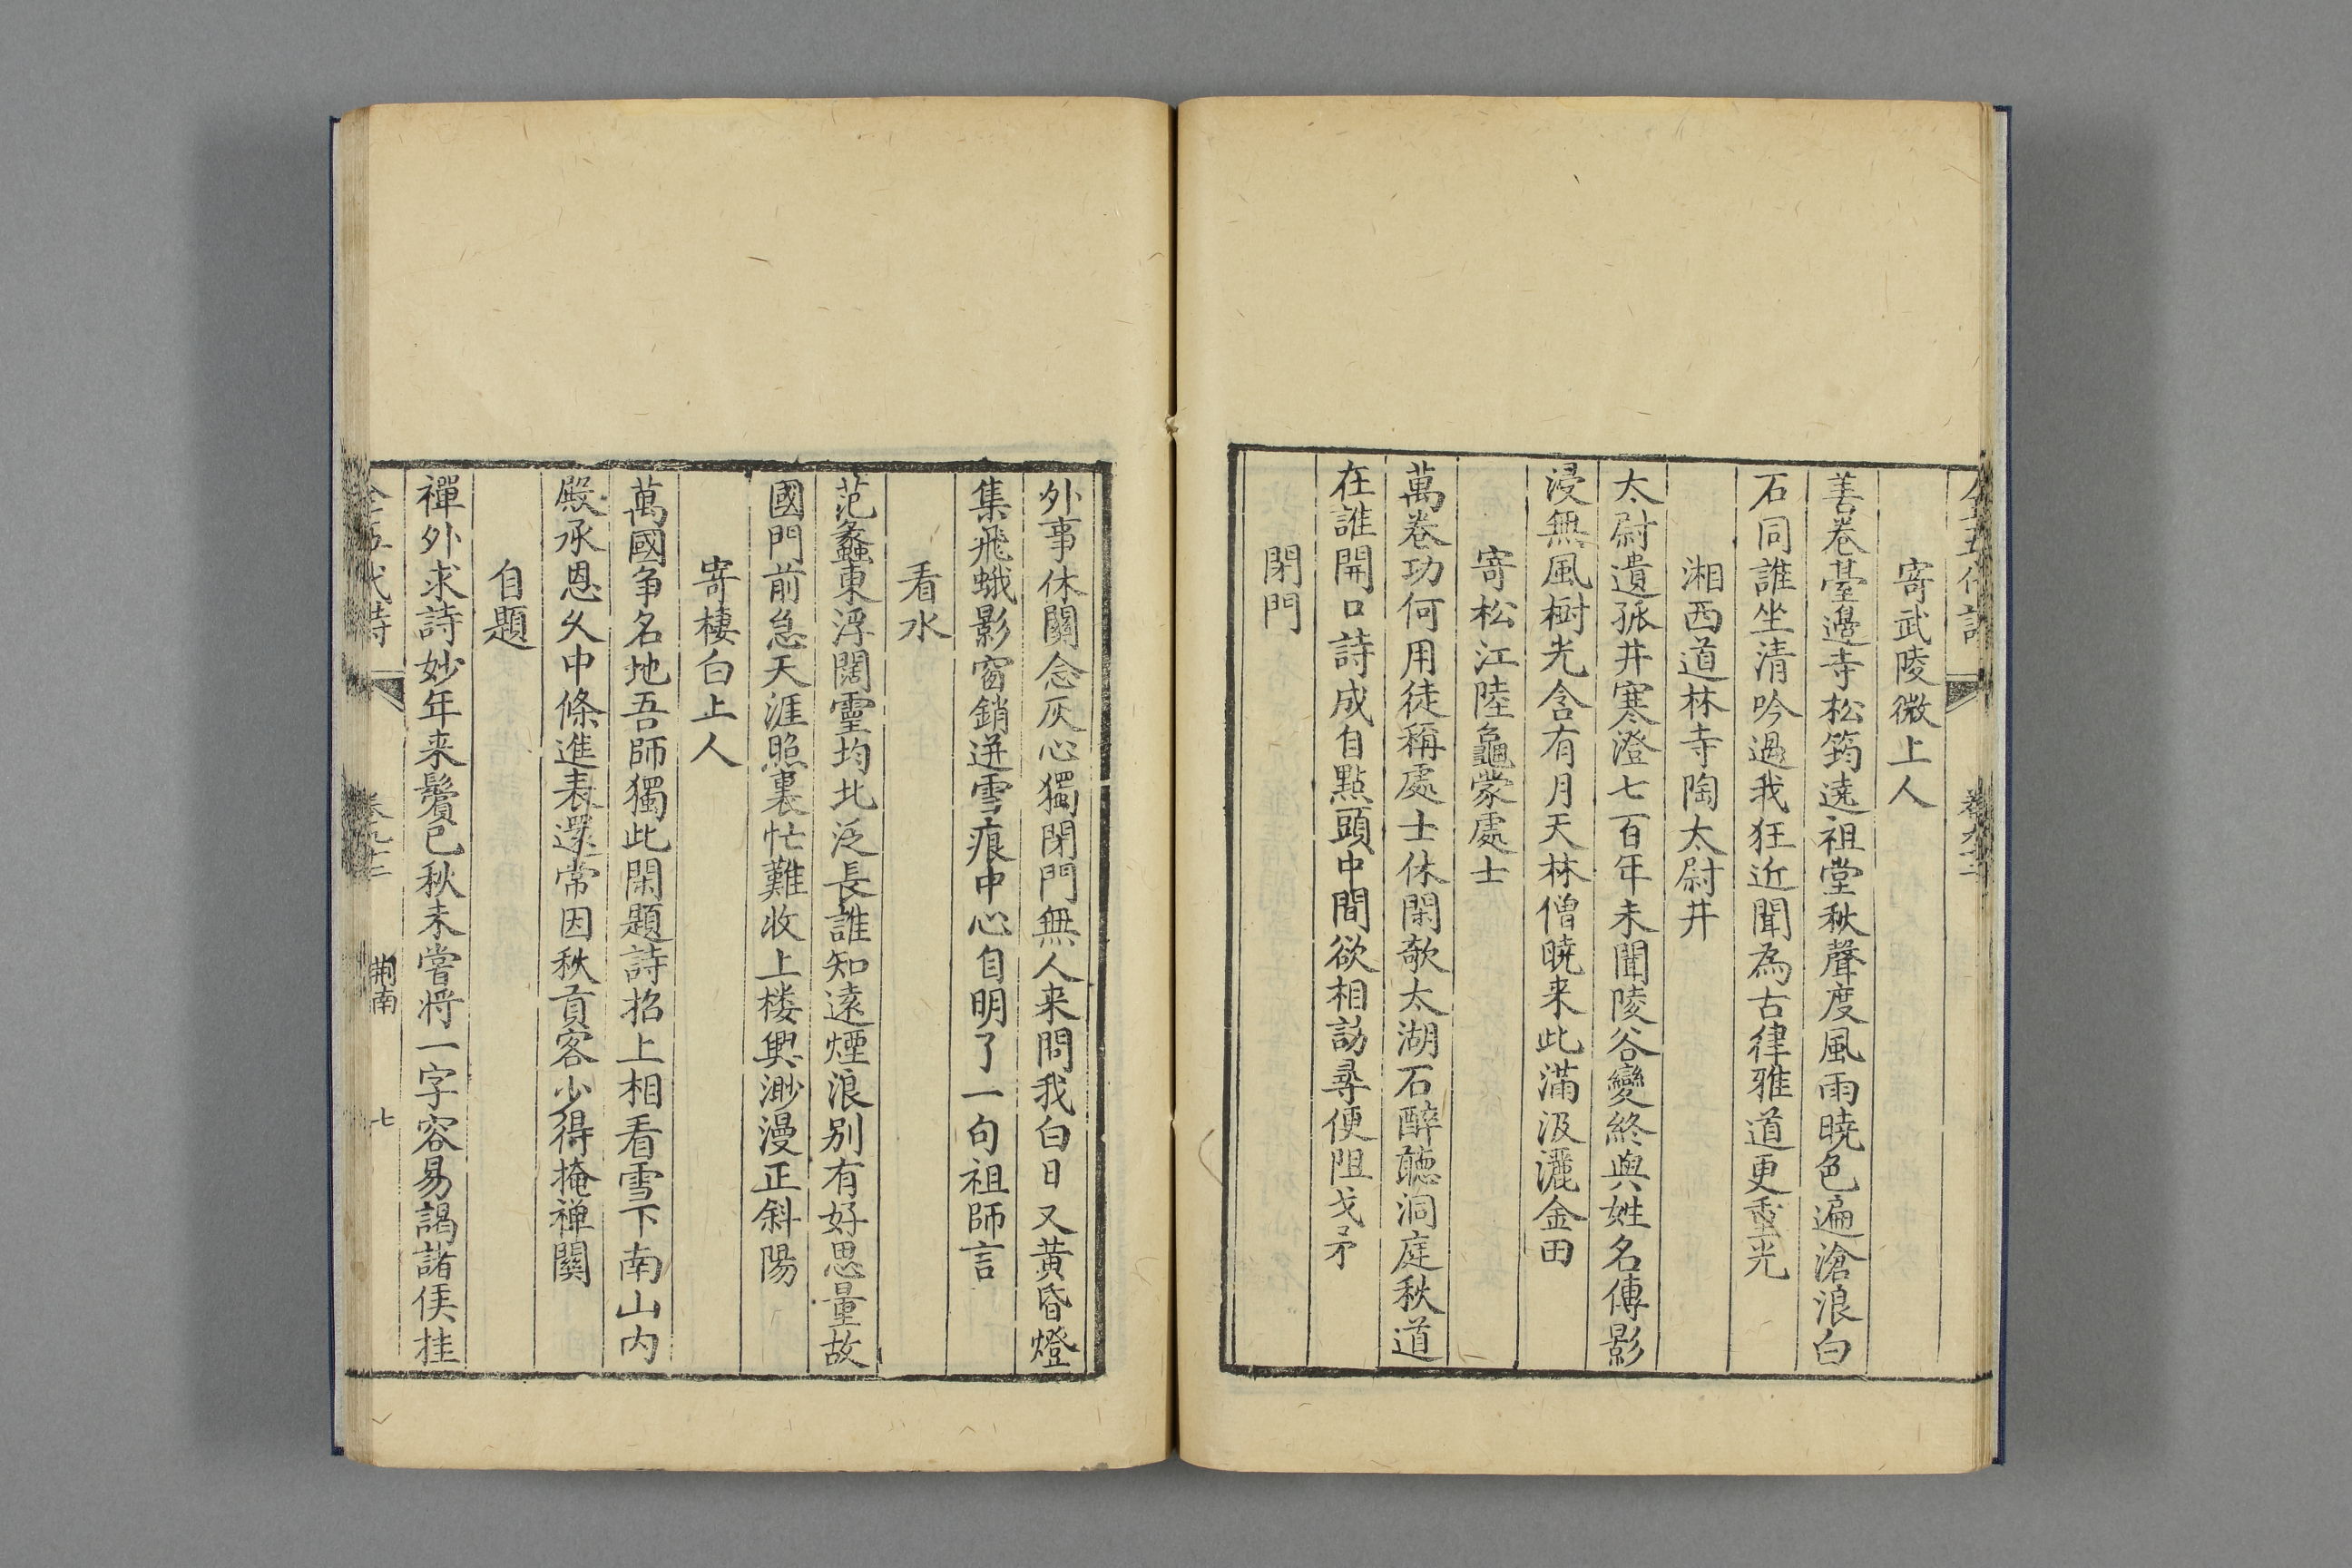 寄武陵微上人
善卷臺邊寺松筠遶祖堂秋聲度風雨曉色遍滄浪白
石同誰坐清吟過我狂近聞為古律雅道更重光
湘西道林寺陶太尉井
太尉遺孤井寒澄七百年未聞陵谷變終與姓名傳影
浸無風樹光含有月天林僧曉来此滿汲灑金田
寄松江陸龜蒙處士
萬卷功何用徒稱處士休閑欹太湖石醉聽洞庭秋道
在誰開口詩成自點頭中間欲相訪尋便阻戈矛
閉門
外事休關念灰心獨閉門無人来問我白日又黃昏燈
集飛蛾影窗銷迸雪痕中心自明了一句祖師言
看水
范蠡東浮闊靈均北泛長誰知遠煙浪别有好思量故
國門前急天涯照裏忙難收上楼興渺漫正斜陽
寄棲白上人
萬國争名地吾師獨此閑題詩招上相看雪下南山内
殿承恩久中條進表還常因秋貢客少得掩禅關
自題
禪外求詩妙年来鬢已秋未嘗将一字容易謁諸侯挂
全五代詩 卷九十二 荆南 七